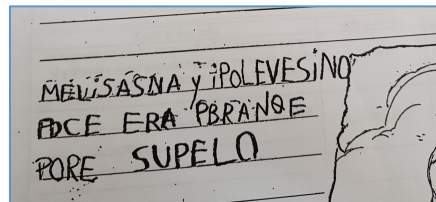 MELiSASNA y iPOLEVESiNO
PDCE ERA PBRANQE
PORE SUPELO